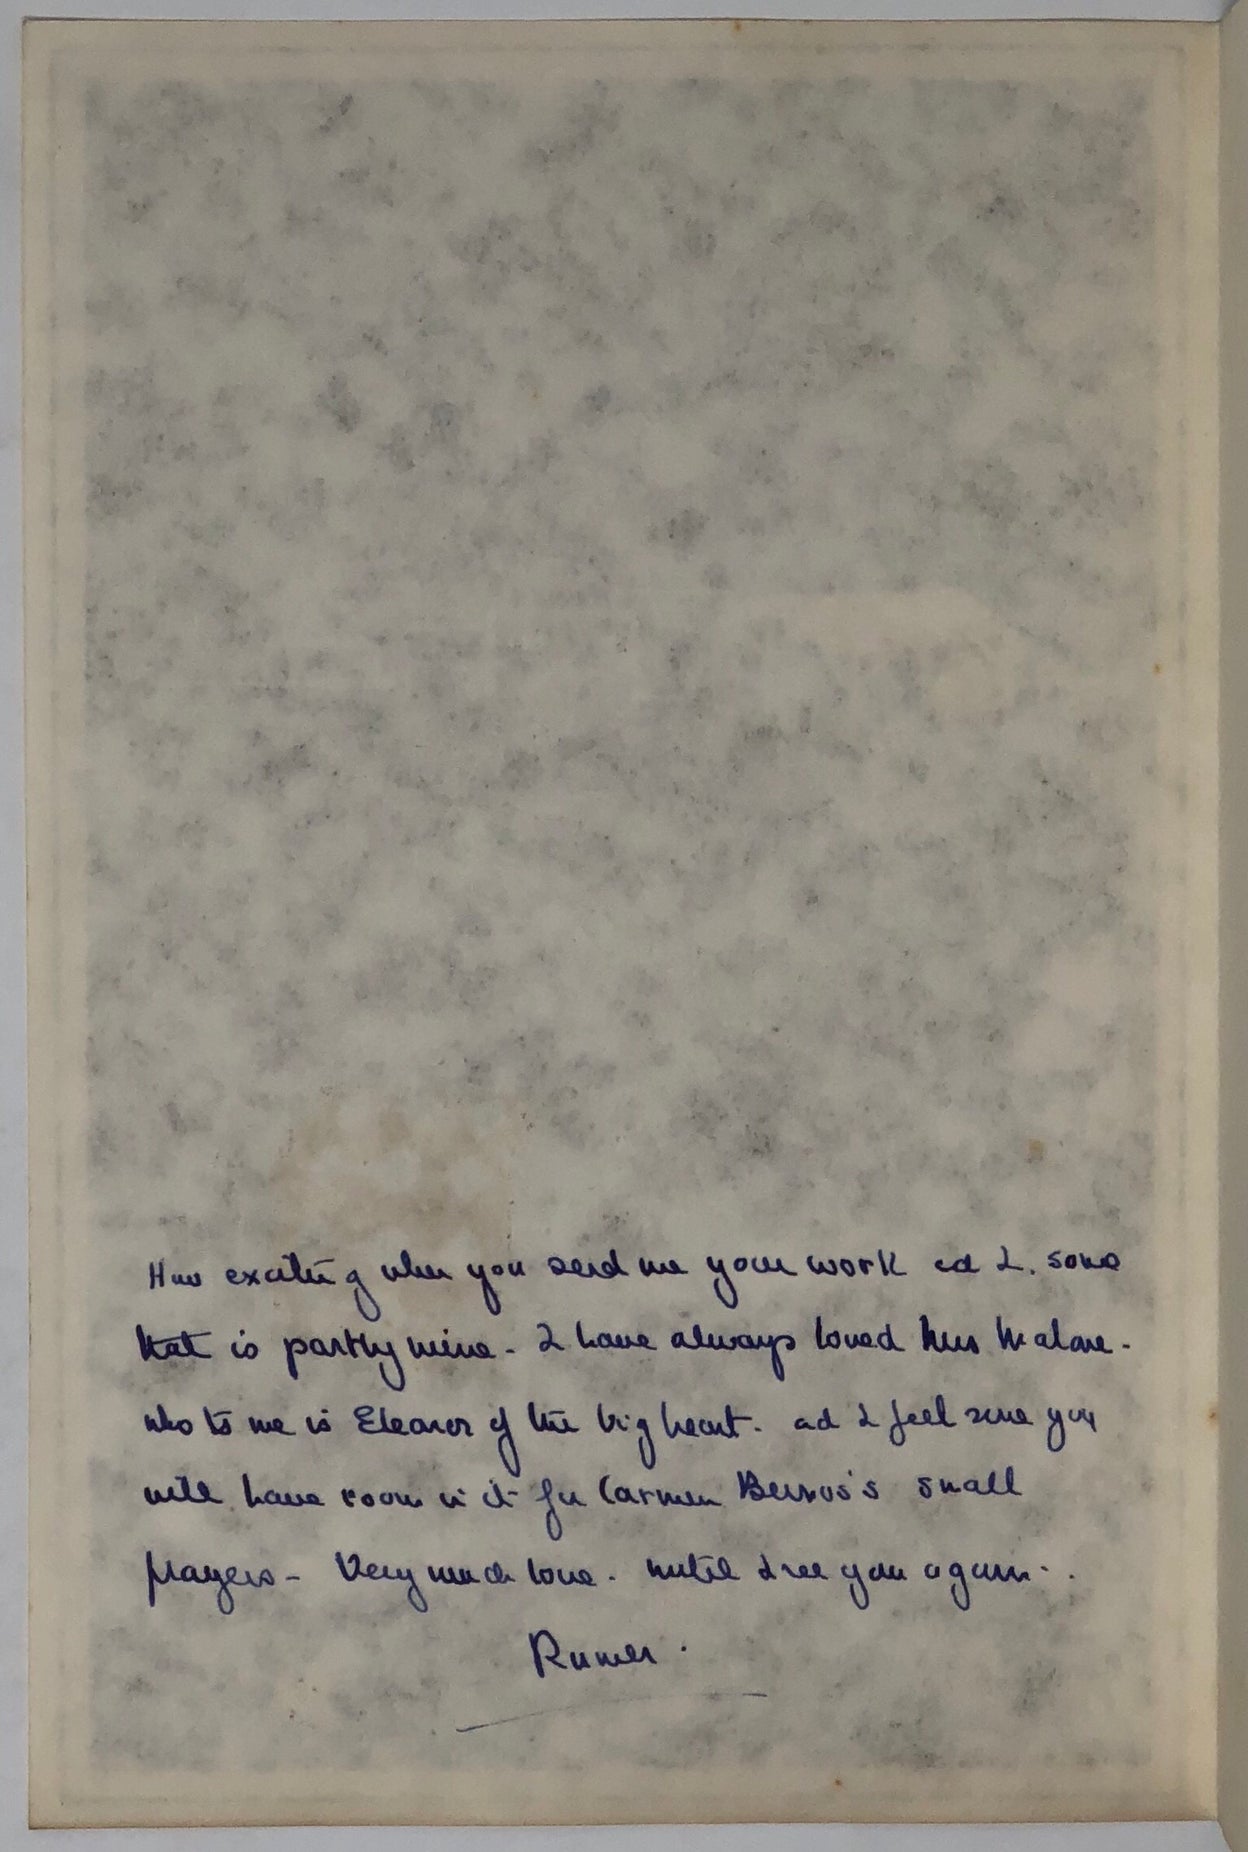 How exciting when you send me your work and I. some
that is partly mine - I have always loved Mrs Malone.
who to me is Eleanor of the big heart. and I feel sure you
will have room in it for Carmen Bernos's small
prayers - Very much love. until I see you again..
Rumer.